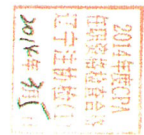 2014年度CPA
任职资格检查合格
辽宁注协
2014年3月